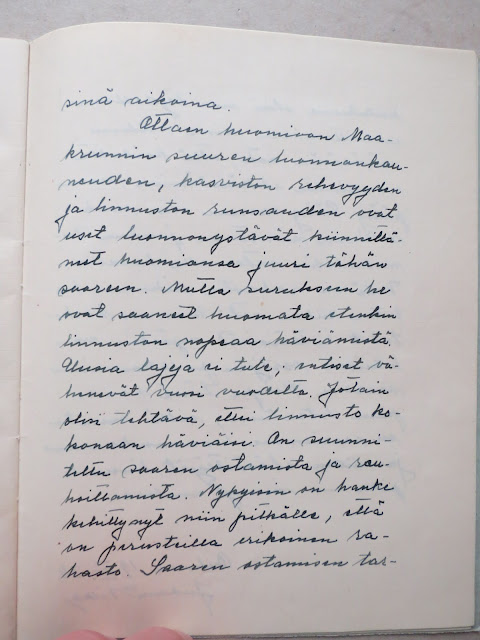 sinä aikoina.
Ottaen huomioon Maa-
krunnin suuren luonnonkau-
neuden, kasviston rehevyyden
ja linnuston runsauden ovat
useat luonnonystävät kiinnittä-
neet huomionsa juuri tähän
saareen. Mutta surukseen he
ovat saaneet huomata etenkin
linnuston nopeaa häviämistä.
Uusia lajeja ei tule, entiset vä-
henevät vuosi vuodelta. Jotain
olisi tehtävä, ettei linnusto ko-
konaan häviäisi. On suunni-
teltu saaren ostamista ja rau-
hoittamista. Nykyisin on hanke
kehittynyt niin pitkälle, että
on perusteilla erikoinen ra-
hasto. Saaren ostamisen tar-